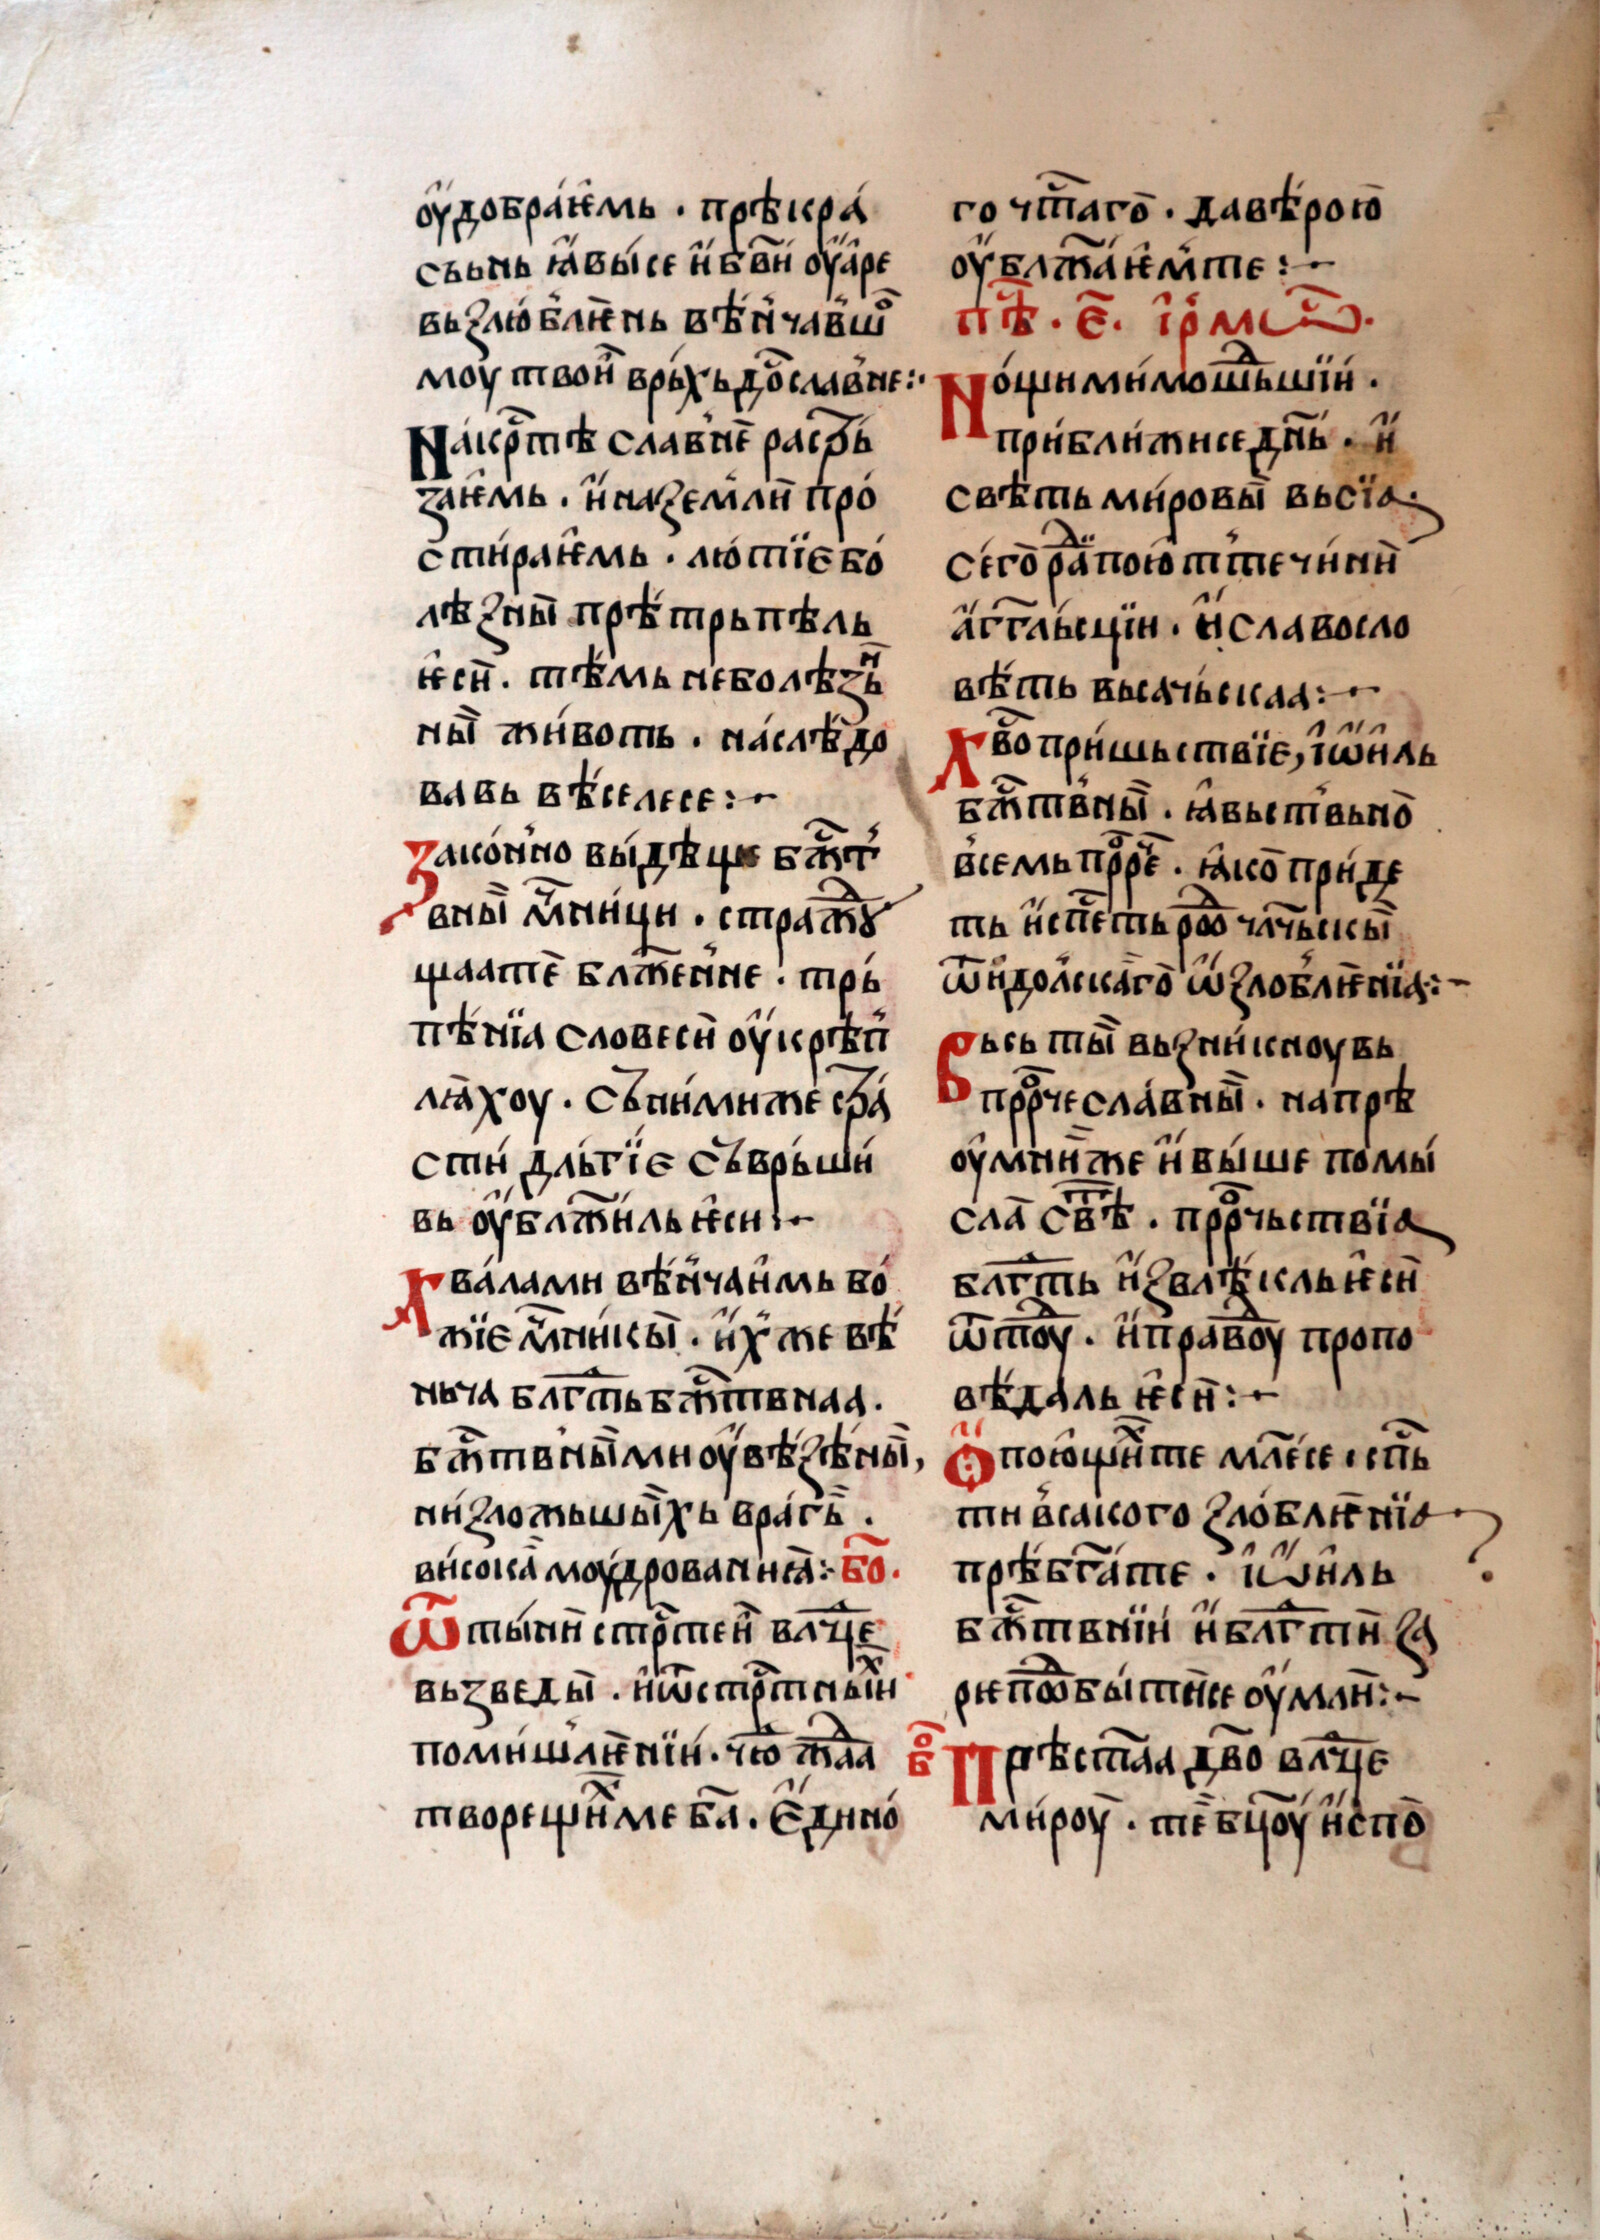 оудобраѥмь · прѣкра
сьнь ꙗвысе и бв҃и оуаре
вьꙁлюблѥнь вѣнчавшо
моу твои врьхь дославне :·
На крⷭ҇тѣ славне растрьꙁ
ꙁаѥмь · и на ꙁемли про
стираѥмь · лютїе бо
лѣꙁны прѣтрьпѣль
ѥси · тѣмь неболѣꙁьн
ны животь · наслѣдо
вавь веселесе :·
Ꙁаконно выдѣци бжⷭ҇т
вны мⷱ҇ници · страждоу
щаате блаженне · трь
пѣнїа словеси оукрѣп
лꙗхоу · сь нимиже стра
сти дльгїе сьврьши
вь оублажиль ѥси :·
Хвалами вѣнчаимь бо
жїе мⷱ҇никы · ихже вѣ
ньча благⷣть бжⷭ҇твнаа ·
бжⷭ҇твнымн оувѣꙁѣны,
ниꙁложьшыихь врагь ·
високаа моудрованиꙗ :· бо҃ ·
Ѿ тыни стрⷭ҇теи влⷣце
вьꙁведы · и ѿ стрⷭ҇тныхи
помишлѥнїи · чⷭ҇тю жⷣаа
творещихме ба҃ · единo
го чⷭ҇таго · да вѣрою
оублажаѥмте :·
Пѣⷭ҇ · е҃ · ірмⷭ҇ѡ ·
Нощи мимошⷣьшїи ·
приближисе днь · и
свѣть мирови вьсїа ·
сего радⷣи поют те чини
агг҃льсции · и славосло
вѣть вьсачьскаа :·
Хв҃о пришьствїе, іѡиль
бжⷭ҇твны · ꙗвьствьно
всемь прорⷱ҇е · ꙗко приде
ть и спⷭ҇еть роⷣ члчьскы
ѿ идолскаго ѡꙁлоблѥнїа :·
Вьсь ты вьꙁникноувь
прⷪ҇рче славны · на прѣ
оумниже и выше помы
сла свѣⷮ · прⷪ҇рчьствїа
благⷣть иꙁвлѣкль ѥси
ѿтоуⷣ · и правⷣоу пропо
вѣдаль ѥси :·
Ѡ поющихте млⷭ҇есе · спⷭ҇ь
ти всакого ꙁлоблѥнїа
прѣбг҃ате · іѡиль
бжⷭ҇твнїи и благⷣти ꙁа
рѥ поⷣбытисе оумли :·
бⷪ҇ Прѣстаа дв҃о влⷣце
мироу · те бц҃оу испо